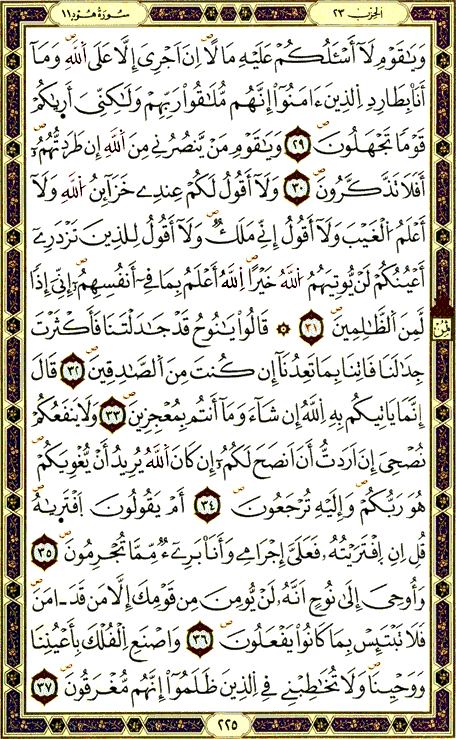 الحزب ٢٣
سُورَةُ هُود ١١
وَيَٰقَوْمِ لَآ أَسْـَٔلُكُمْ عَلَيْهِ مَالًا اِنَ اَجْرِيَ إِلَّا عَلَى اَللَّهِ وَمَآ
أَنَا بِطَارِدِ اِلذِينَ ءَامَنُوٓاْ إِنَّهُم مُّلَٰقُواْ رَبِّهِمْ وَلَٰكِنِّيَ أَر۪يٰكُمْ
قَوْمًا تَجْهَلُونَ ٢٩ وَيَٰقَوْمِ مَنْ يَّنصُرُنِي مِنَ اَللَّهِ إِن طَرَدتُّهُمُۥٓ
أَفَلَا تَذَّكَّرُونَ ٣٠ وَلَآ أَقُولُ لَكُمْ عِندِي خَزَآئِنُ اُللَّهِ وَلَآ
أَعْلَمُ اُلْغَيْبَ وَلَآ أَقُولُ إِنِّي مَلَكٌ وَلَآ أَقُولُ لِلذِينَ تَزْدَرِيٓ
أَعْيُنُكُمْ لَنْ يُّوتِيَهُمُ اُللَّهُ خَيْرًا اِ۬للَّهُ أَعْلَمُ بِمَا فِيٓ أَنفُسِهِمُۥٓ إِنِّيَ إِذًا
لَّمِنَ اَلظَّٰلِمِينَ ٣١ ۞ قَالُواْ يَٰنُوحُ قَدْ جَٰدَلْتَنَا فَأَكْثَرْتَ
جِدَٰلَنَا فَاتِنَا بِمَا تَعِدُنَآ إِن كُنتَ مِنَ اَلصَّٰدِقِينَ ٣٢ قَالَ
إِنَّمَا يَاتِيكُم بِهِ اِللَّهُ إِن شَآءَ وَمَآ أَنتُم بِمُعْجِزِينَ ٣٣ وَلَا يَنفَعُكُمْ
نُصْحِيَ إِنَ اَرَدتُّ أَنَ اَنصَحَ لَكُمُۥٓ إِن كَانَ اَللَّهُ يُرِيدُ أَنْ يُّغْوِيَكُمْ
هُوَ رَبُّكُمْ وَإِلَيْهِ تُرْجَعُونَ ٣٤ أَمْ يَقُولُونَ اَ۪فْتَر۪يٰهُ
قُلِ اِنِ اِ۪فْتَرَيْتُهُۥ فَعَلَيَّ إِجْرَامِي وَأَنَا بَرِيٓءٌ مِّمَّا تُجْرِمُونَ ٣٥
وَأُوحِيَ إِلَىٰ نُوحٍ اَنَّهُۥ لَنْ يُّومِنَ مِن قَوْمِكَ إِلَّا مَن قَدَ اٰمَنَ
فَلَا تَبْتَئِسْ بِمَا كَانُواْ يَفْعَلُونَ ٣٦ وَاصْنَعِ اِلْفُلْكَ بِأَعْيُنِنَا
وَوَحْيِنَا وَلَا تُخَٰطِبْنِي فِي اِلذِينَ ظَلَمُوٓاْ إِنَّهُم مُّغْرَقُونَ ٣٧
ثمن
٢٢٥